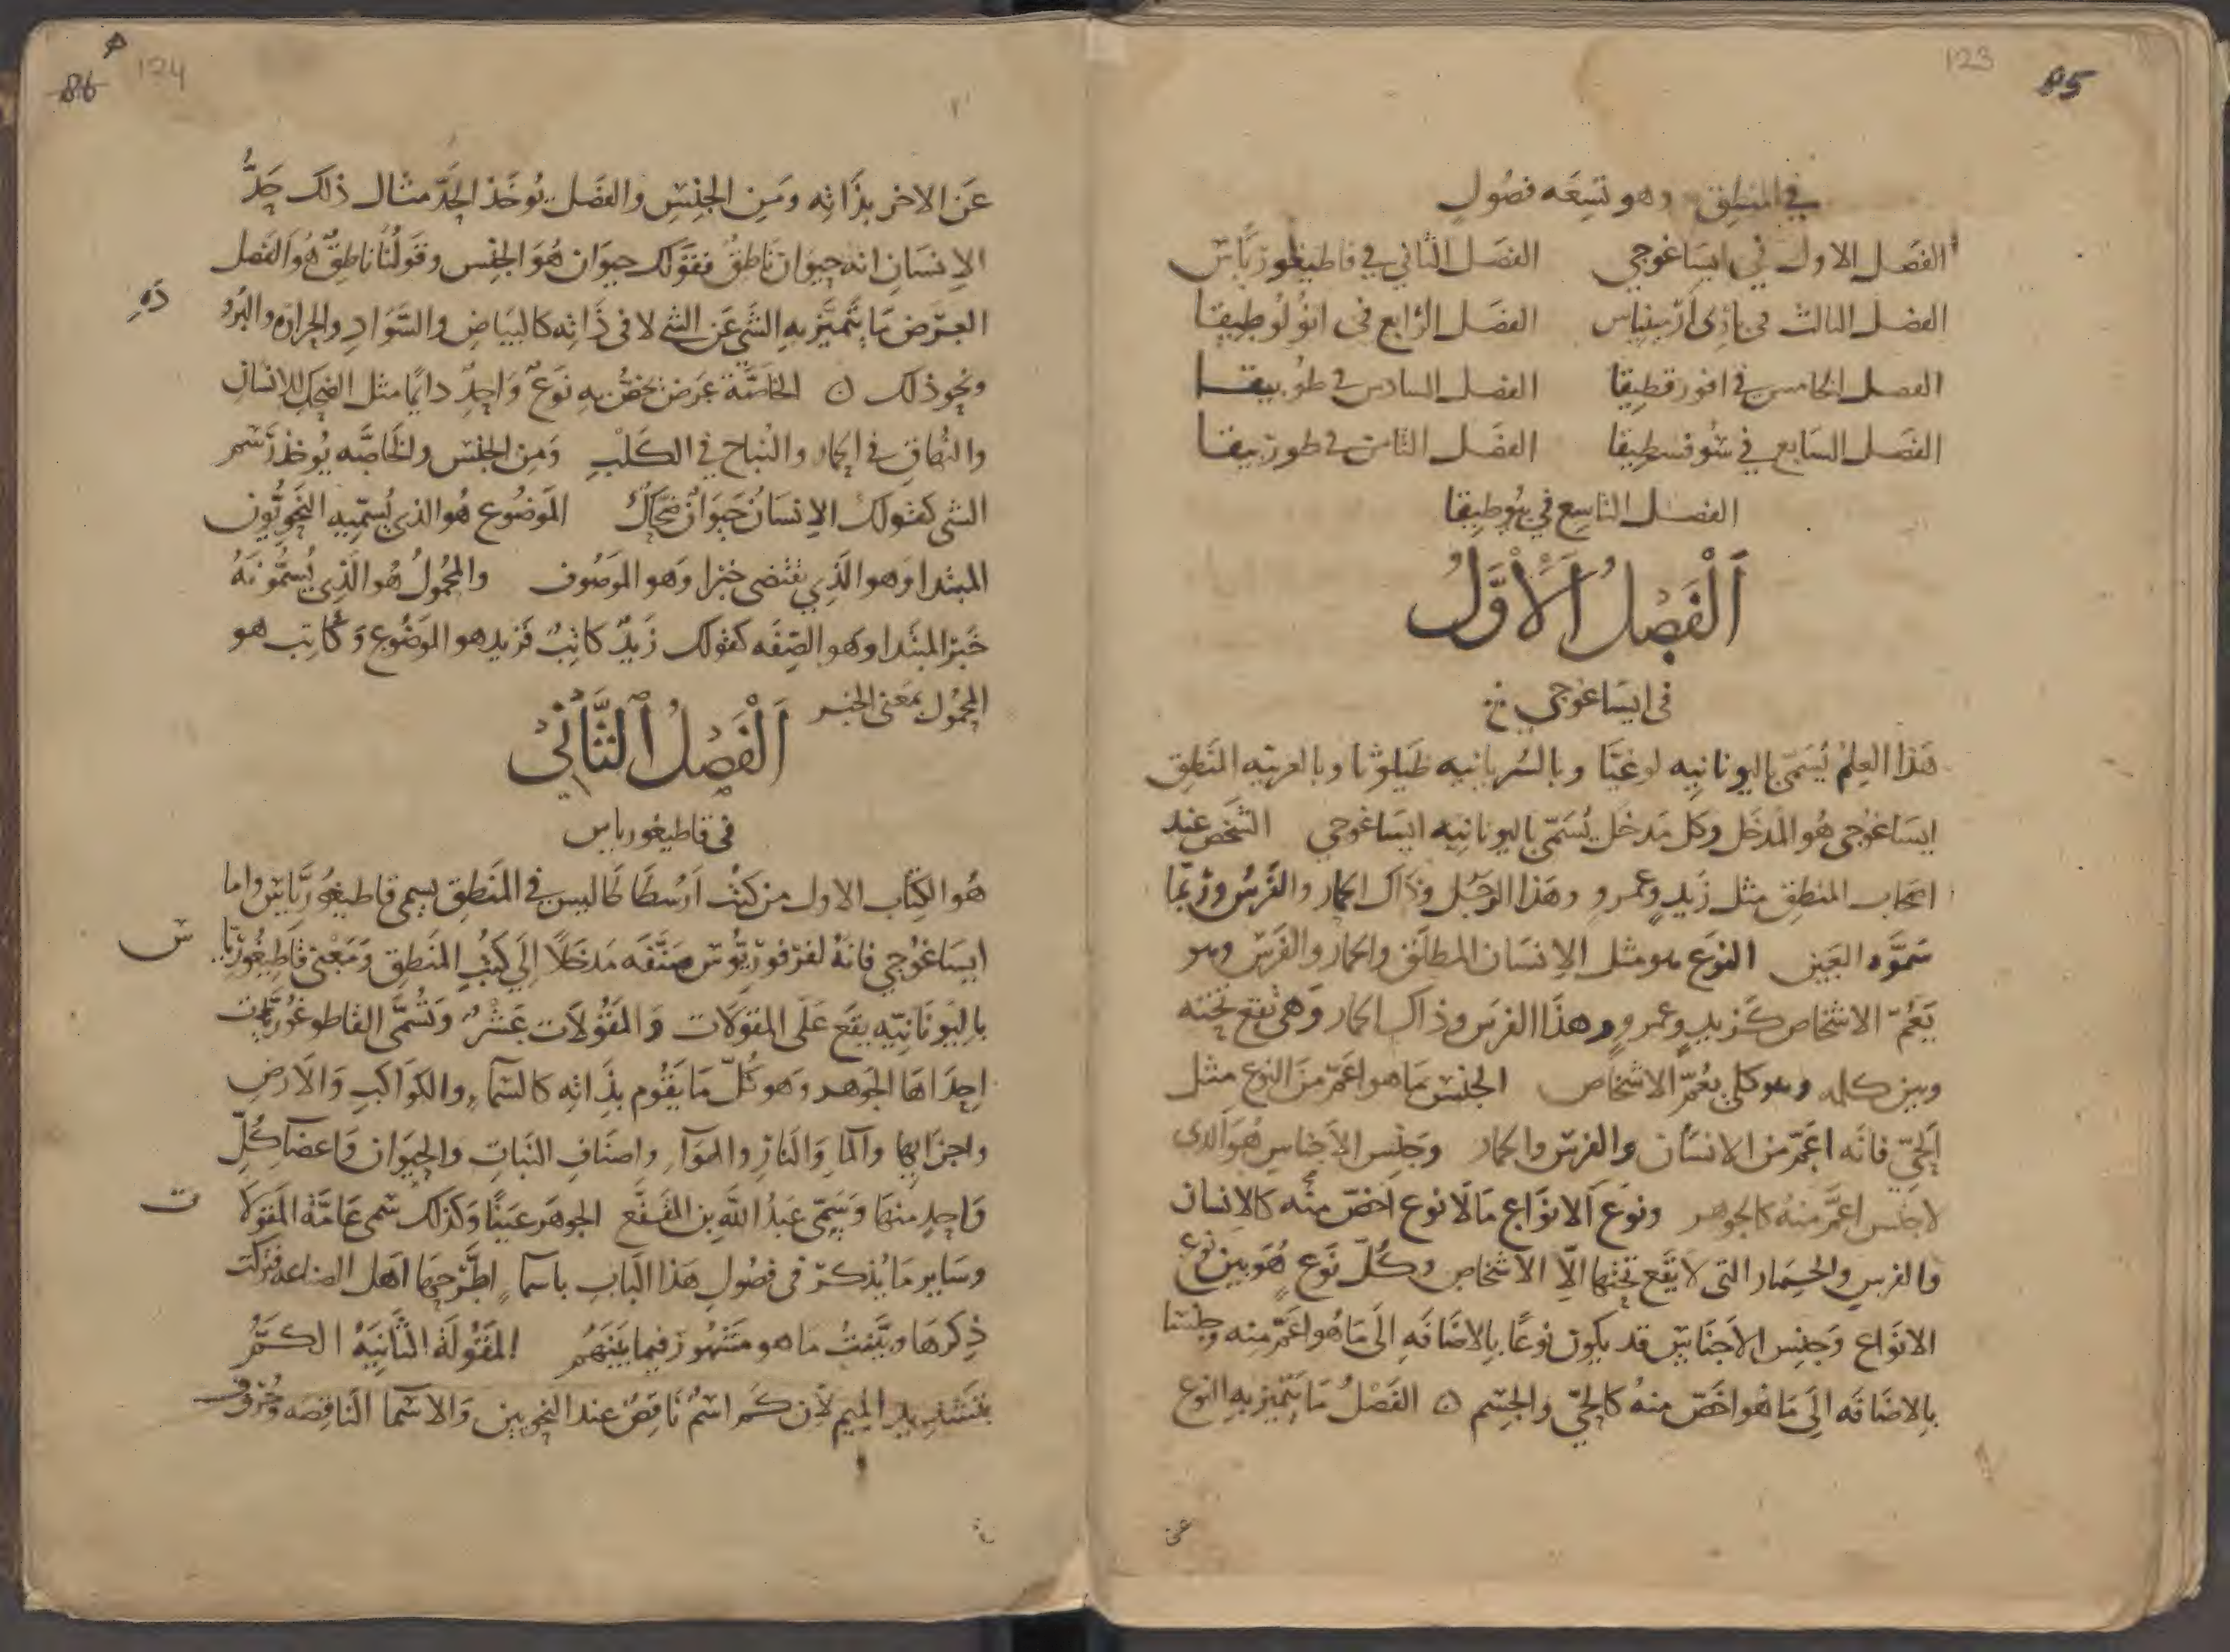 123
85
في المنطق وهو تسعه فصول
الفصل الاول في ايساغوجي الفصل الثاني في قاطيغورياس
الفصل الثالث في باري ارمينياس الفصل الرابع في انولوطيقا
الفصل الخامس في افورقطيقا الفصل السادس في طوبيقا
الفصل السابع في سوفسطيقا الفصل الثامن في طوريقا
الفصل التاسع في بيوطيقا
اَلْفَصْلُ اَلْأَوَّلُ
في ايساغوجي
هَذا العِلمُ يُسَمّى باليونانِيه لوغيَّا وبالسُريانيه مليلوثا وبالعربيه المَنطِق
ايسَاغوجي هُو المَدخَل وكل مَدخَل يُسَمّى باليونانِيه ايسَاغوجي الشخص عند
اصحاب المنطِق مثل زَيدٍ وعمرو وهَذا الرَجُل وذاك الحمار والفَرس ورُبّما
سَمَّوه العَين النوَع هو مثل الاِنسَان المطلَق والحمار والفَرس وهو
يَعُمّ الاشخاص كزيدٍ وعمروٍ وهذا الفرس وذاك الحمار وَهي تقع تحته
وبين كليه وهو كلي يعُمّ الاشخاص الجنس مَا هو اعَمّ منَ النوع مثل
الحَيّ فانَه اعَمّ من الانسَان والفرس والحمار وجَنِس الاَجناس هُوَ الذي
لاجنس اعمَّ منهُ كالجوهر ونوَع اَلانوَاع مَا لَا نوع اَخصّ منه كالانسان
والفرس والحِمار التي لا يَقَع تحتها اِلّا الاشخاص وكُلّ نَوع هُوَ بين نوع
الانوَاع وَجنِس الاَجنَاس قد يكون نوعًا بالاضَافَه الَى مَا هُو اعَمّ منه وجنسا
بِالاضَافَه الَى مَا هُو اخَصّ منهُ كالحَيّ والجسم ه الفَصْلُ مَا يَتميّز به النوع
عن
86 124
عَن الاخر بذَاتِه ومَن الجنِس والفَصل يُوخَذ الحَدّ مثال ذلك حَدُّ
الاِنسَانِ انه حيَوان نَاطِقٌ فقَولك حيوَان هُوَ الجنس وقَولنُا ناطِقٌ هُو الفَصل
العَرَض مَا يَتَميَّز بهِ الشي عَن الشي لا في ذَاتِه كالبَيَاضِ والسَّوَادِ والحرارَه والبُرُو
دَهِ
ونحو ذلك ه الخاصَّة عَرض يخصُّ بهِ نَوعٌ وَاحِدٌ دايمًا مثل الضحك للانسان
والنهاق في الحمار والنُباح في الكَلْبِ وَمِن الجنس والخَاصَّه يُوخذ رَسم
الشي كقولك الاِنسَانُ حَيَوانٌ ضحَّاكٌ المَوضُوع هُو الذي يُسَمّيه النَحوِيُّون
المبتدا وَهو الذِي يقتضى خبرا وَهو المَوصُوف والمحمُولُ هُو الَّذِي يُسَمُّونَهُ
خَبَرَ المبتَدا وَهو الصِفَه كقولك زَيدٌ كاتِبٌ فَزيد هو الموَضوع وَكَاتِب هو
المحمُول بمَعنى الخبر
اَلْفَصْلُ اَلثَّانِيْ
في قاطيغورياس
هُو الكِتاَب الاول من كتُب اَرُسطَاطَاليس في المنَطِق يسمى قاطيغُورَيَاس واما
ايسَاغُوجي فانهُ لفرفورَيُوس صَنَّفَه مَدخَلًا اِلَى كتُبِ المَنطِق وَمَعنى قاطِيغُوريَا
س
باليُونَانِيّه يقَع عَلَى المقوَلَات وَالمقَوُلَات عَشْرٌ وَتُسَمَّى القاطوغُوريَّات
اِحدَاهَا الجَوهر وَهو كُلّ مَا يَقُوم بذَاتِه كالسَماَءِ والكوَاكب وَالاَرضِ
واجزَايهَا والمَا وَالنَار والهوَآ وَاصنَاف النَبات والحيَوَان وَاعضَآ كُلّ
وَاحدٍ منهَا وَيَسمّى عَبدُ اللَّه بن المُقفَّع الجوهَر عَينًا وَكذلك سَمى عَامَّة المَقوَلَا
ت
وسَاير مَا يُذكر في فصُول هَذا البَاب باسمآءٍ اطَّرحَها اهل الصناعه فتركت
ذِكرهَا وبيَّنتُ مَا هو مَشهُور فيما بَينَهُم المَقُولَة الثَّانِيَهُ الكَمُّ
بتشديد الميم لاَن كَم اسمٌ نَاقِصٌ عند النحويين وَالاسمَا النَاقِصَه وحُروف